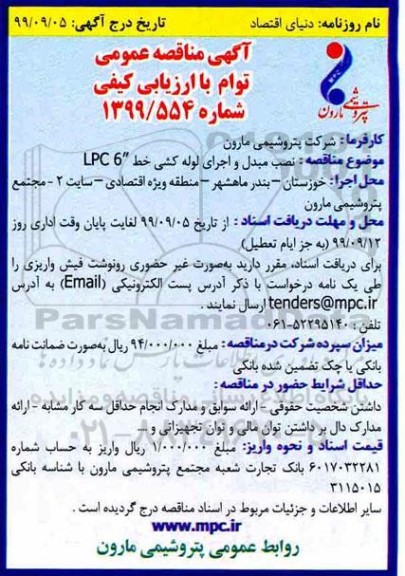 نام روزنامه: دنیای اقتصاد
تاریخ درج آگهی: ۹۹/۰۹/۰۵
آگهی مناقصه عمومی
توام با ارزیابی کیفی
شماره ۱۳۹۹/۵۵۴
MPC
پتروشیمی مارون
کارفرما: شرکت پتروشیمی مارون
موضوع مناقصه: نصب مبدل و اجرای لوله کشی خط "6 LPC
محل اجرا: خوزستان – بندر ماهشهر – منطقه ویژه اقتصادی – سایت ۲ - مجتمع
پتروشیمی مارون
محل و مهلت دریافت اسناد: از تاریخ ۹۹/۰۹/۰۵ لغایت پایان وقت اداری روز
۹۹/۰۹/۱۲ (به جز ایام تعطیل)
برای دریافت اسناد، مقرر دارید به‌صورت غیر حضوری رونوشت فیش واریزی را
طی یک نامه درخواست با ذکر آدرس پست الکترونیکی (Email) به آدرس
tenders@mpc.ir ارسال نمایند.
تلفن: ۰۶۱-۵۲۲۹۵۱۴۰
میزان سپرده شرکت درمناقصه: مبلغ ۹۴/۰۰۰/۰۰۰ ریال به‌صورت ضمانت نامه
بانکی یا چک تضمین شده بانکی
حداقل شرایط حضور در مناقصه:
داشتن شخصیت حقوقی - ارائه سوابق و مدارک انجام حداقل سه کار مشابه - ارائه
مدارک دال بر داشتن توان مالی و توان تجهیزاتی و ...
قیمت اسناد و نحوه واریز: مبلغ ۱/۰۰۰/۰۰۰ ریال واریز به حساب شماره
۶۰۱۷۰۳۲۲۸۱ بانک تجارت شعبه مجتمع پتروشیمی مارون با شناسه بانکی
۳۱۱۵۰۱۵
سایر اطلاعات و جزئیات مربوط در اسناد مناقصه درج گردیده است.
www.mpc.ir
روابط عمومی پتروشیمی مارون
ParsNamadData